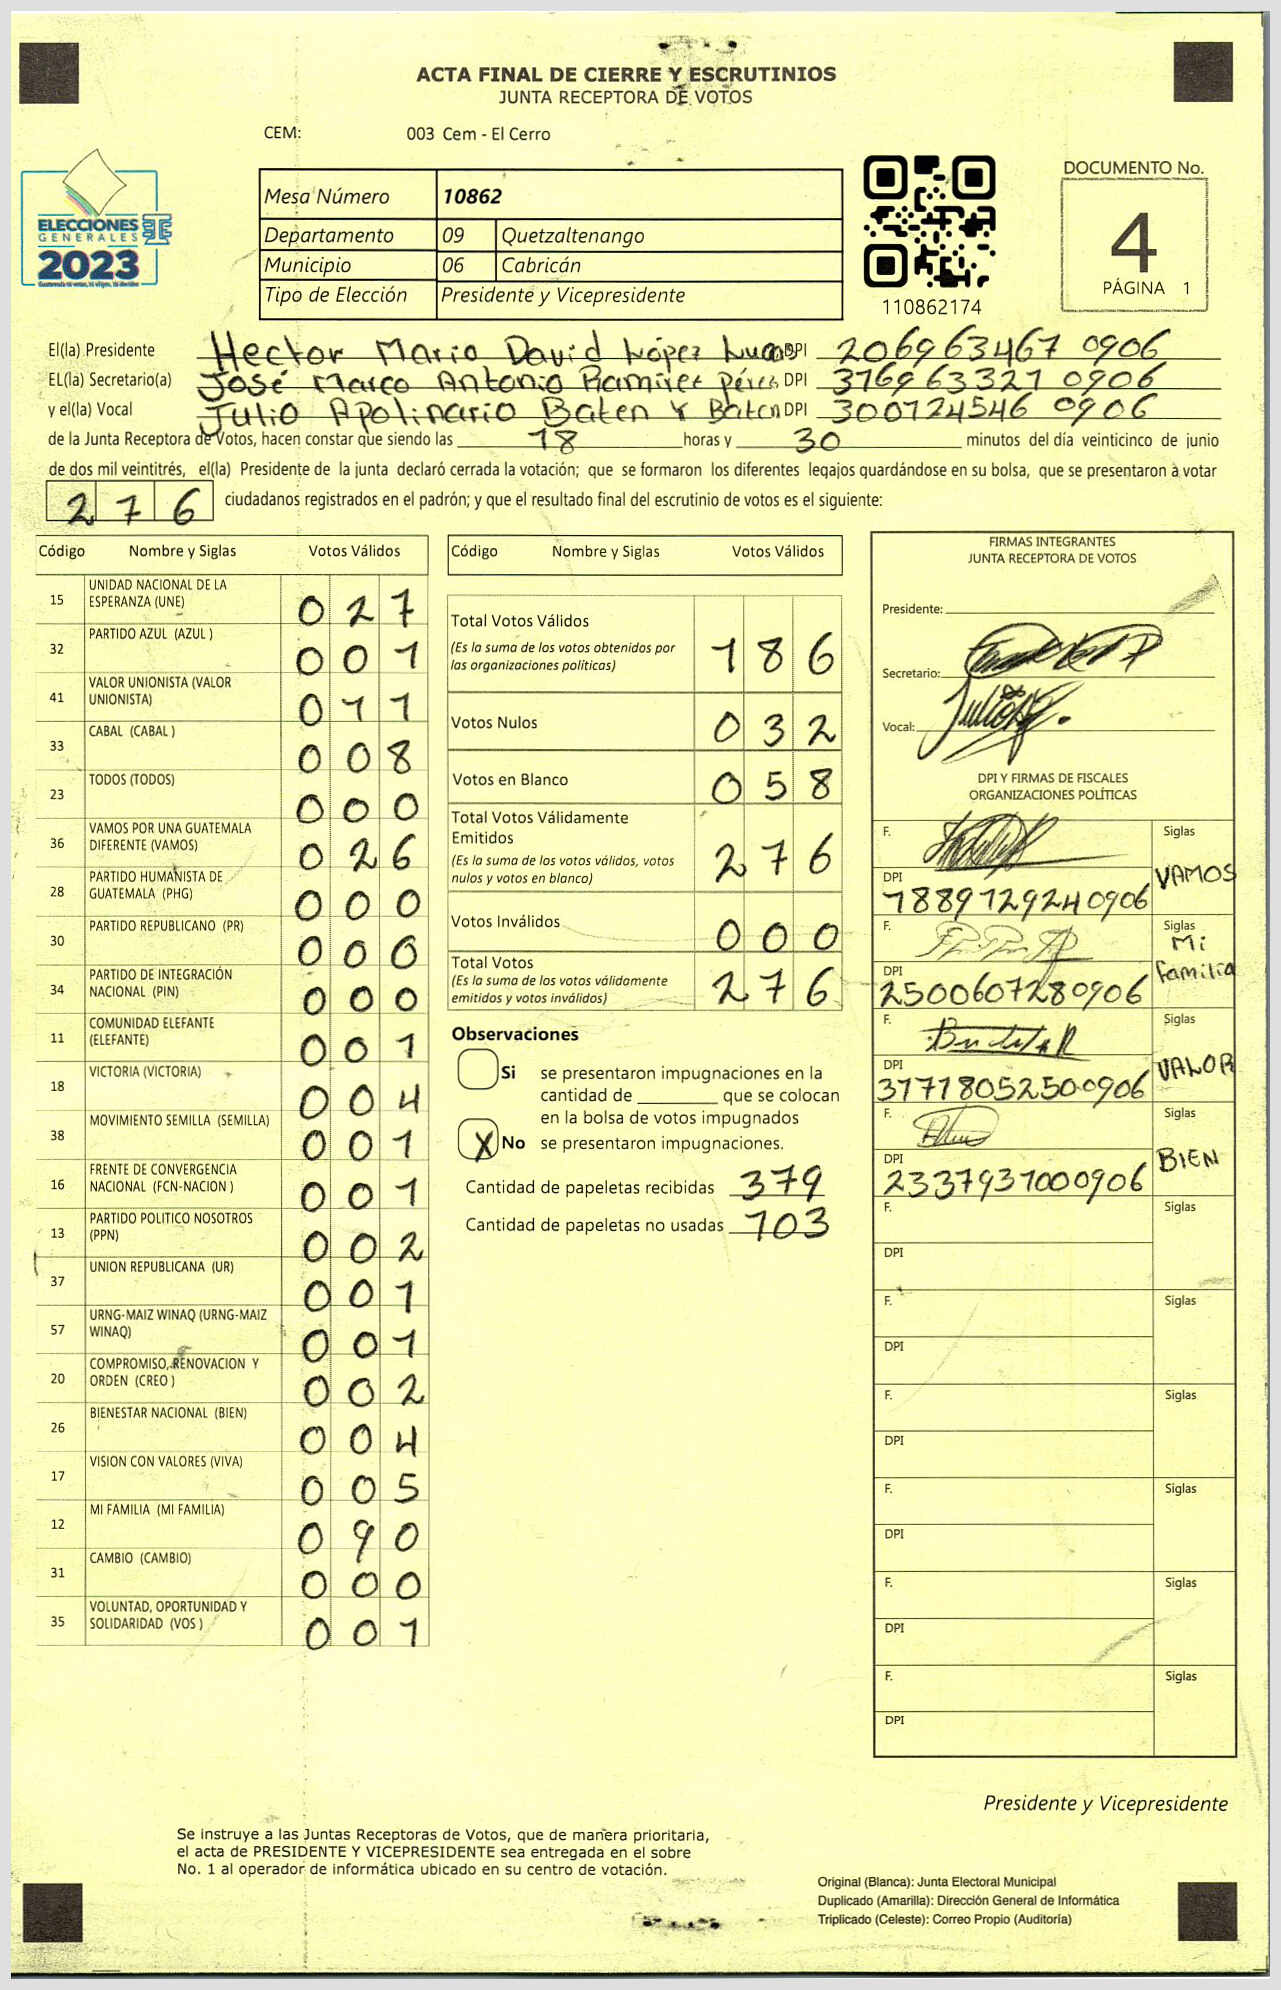 ACTA FINAL DE CIERRE Y ESCRUTINIOS
JUNTA RECEPTORA DE VOTOS
CEM: 003 Cem - El Cerro
ELECCIONES
GENERALES
2023
Mesa Número 10862
Departamento 09 Quetzaltenango
Municipio 06 Cabricán
Tipo de Elección Presidente y Vicepresidente
110862174
DOCUMENTO No.
4
PÁGINA 1
El(la) Presidente Hector Mario David López DPI 206963467 0906
EL(la) Secretario(a) José Marco Antonio Ramirez Pérez DPI 376963327 0906
y el(la) Vocal Julio Apolinario Baten Y Baten DPI 300724546 0906
de la Junta Receptora de Votos, hacen constar que siendo las 18 horas y 30 minutos del día veinticinco de junio
de dos mil veintitrés, el(la) Presidente de la junta declaró cerrada la votación; que se formaron los diferentes legajos quardándose en su bolsa, que se presentaron a votar
276 ciudadanos registrados en el padrón; y que el resultado final del escrutinio de votos es el siguiente:
Código Nombre y Siglas Votos Válidos
15 UNIDAD NACIONAL DE LA
ESPERANZA (UNE) 027
32 PARTIDO AZUL (AZUL ) 001
41 VALOR UNIONISTA (VALOR
UNIONISTA) 011
33 CABAL (CABAL ) 008
23 TODOS (TODOS) 000
36 VAMOS POR UNA GUATEMALA
DIFERENTE (VAMOS) 026
28 PARTIDO HUMANISTA DE
GUATEMALA (PHG) 000
30 PARTIDO REPUBLICANO (PR) 000
34 PARTIDO DE INTEGRACIÓN
NACIONAL (PIN) 000
11 COMUNIDAD ELEFANTE
(ELEFANTE) 001
18 VICTORIA (VICTORIA) 004
38 MOVIMIENTO SEMILLA (SEMILLA) 001
16 FRENTE DE CONVERGENCIA
NACIONAL (FCN-NACION ) 001
13 PARTIDO POLITICO NOSOTROS
(PPN) 002
37 UNION REPUBLICANA (UR) 001
57 URNG-MAIZ WINAQ (URNG-MAIZ
WINAQ) 001
20 COMPROMISO, RENOVACION Y
ORDEN (CREO ) 002
26 BIENESTAR NACIONAL (BIEN) 004
17 VISION CON VALORES (VIVA) 005
12 MI FAMILIA (MI FAMILIA) 090
31 CAMBIO (CAMBIO) 000
35 VOLUNTAD, OPORTUNIDAD Y
SOLIDARIDAD (VOS ) 001
Código Nombre y Siglas Votos Válidos
Total Votos Válidos
(Es la suma de los votos obtenidos por
las organizaciones políticas) 186
Votos Nulos 032
Votos en Blanco 058
Total Votos Válidamente
Emitidos
(Es la suma de los votos válidos, votos
nulos y votos en blanco) 276
Votos Inválidos 000
Total Votos
(Es la suma de los votos válidamente
emitidos y votos inválidos) 276
Observaciones
Si se presentaron impugnaciones en la
cantidad de ________ que se colocan
en la bolsa de votos impugnados
X No se presentaron impugnaciones.
Cantidad de papeletas recibidas 379
Cantidad de papeletas no usadas 103
FIRMAS INTEGRANTES
JUNTA RECEPTORA DE VOTOS
Presidente:
Secretario:
Vocal:
DPI Y FIRMAS DE FISCALES
ORGANIZACIONES POLÍTICAS
F. Siglas
VAMOS
DPI
1889129240906
F. Siglas
Mi
familia
DPI
2500607280906
F. Siglas
VALOR
DPI
31718052500906
F. Siglas
BIEN
DPI
2337937000906
F. Siglas
DPI
F. Siglas
DPI
F. Siglas
DPI
F. Siglas
DPI
F. Siglas
DPI
F. Siglas
DPI
Presidente y Vicepresidente
Se instruye a las Juntas Receptoras de Votos, que de manera prioritaria,
el acta de PRESIDENTE Y VICEPRESIDENTE sea entregada en el sobre
No. 1 al operador de informática ubicado en su centro de votación.
Original (Blanca): Junta Electoral Municipal
Duplicado (Amarilla): Dirección General de Informática
Triplicado (Celeste): Correo Propio (Auditoría)